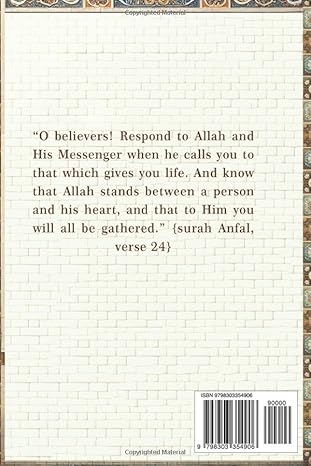 Copyrighted Material
“O believers! Respond to Allah and
His Messenger when he calls you to
that which gives you life. And know
that Allah stands between a person
and his heart, and that to Him you
will all be gathered.” {surah Anfal,
verse 24}
ISBN 9798303354906
90000
9 798303 354906
Copyrighted Material